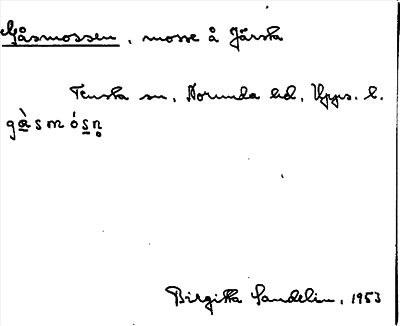 Gåsmossen, mosse å Järsta
Tensta sn, Norunda hd, Upps. l.
gàsmósn̥
Birgitta Sandelin, 1953